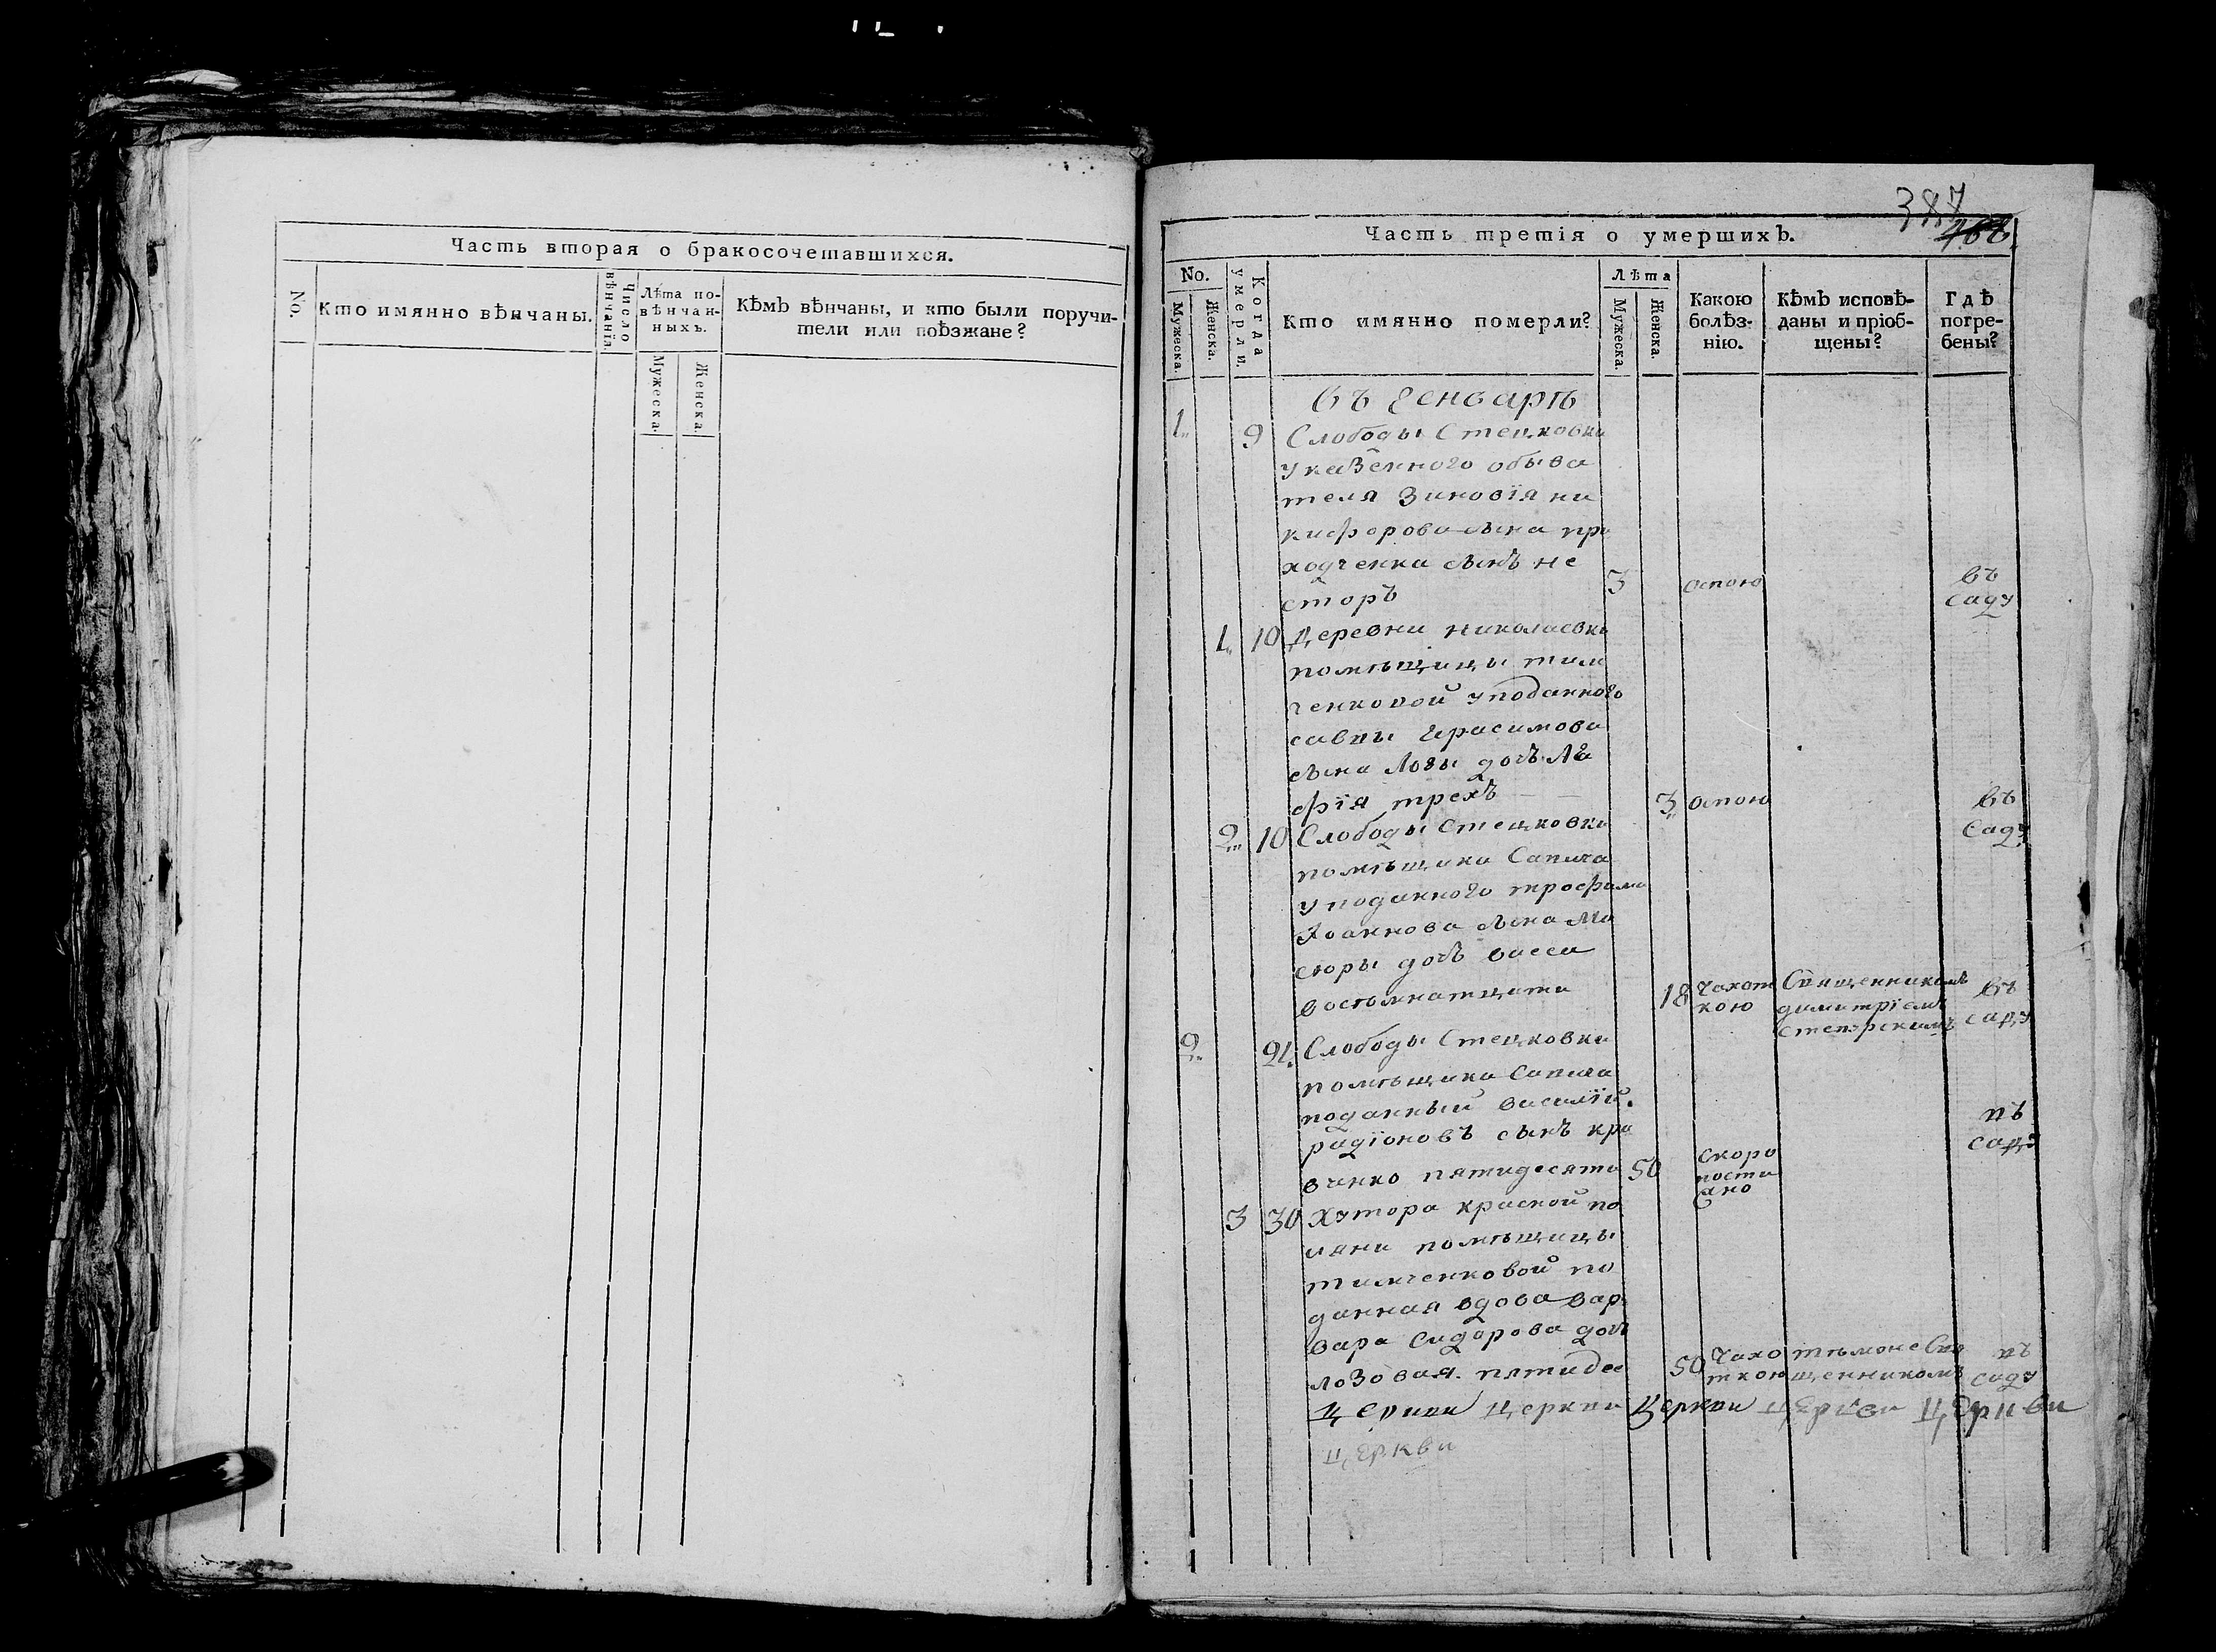 Часть вторая о бракосочетавшихся.
No.
Кто имянно вѣнчаны.
Число вѣнчанїя.
Лѣта по-
вѣнчан-
ныхъ.
Мужеска.
Женска.
Кѣмъ вѣнчаны, и кто были поручи-
тели или поѣзжане?
387
468
Часть третїя о умершихъ.
No.
Мужеска.
Женска.
Когда умерли.
Кто имянно померли?
Лѣта
Мужеска.
Женска.
Какою
болѣз-
нїю.
Кѣмъ исповѣ-
даны и прїоб-
щены?
Гдѣ
погре-
бены?
въ генварѣ
1 9 Слободы Стецковки
у казенного обыва
теля Зиновїя ни
кифорова сына при
ходченка сынъ не
сторъ 3 оспою въ
саду
1 10 Деревни николаевки
помѣщицы тим
ченковой у поданного
саввы герасимова
сына Лозы дочь
фїя трехъ 3 оспою въ
саду
2 10 Слободы Стецковки
помѣщика Сапича
у поданного трофима
Іоаннова сына Ма
сюры дочь васса
восѣмнатцати 18 чахот Священникомъ въ
кою димитрїемъ
саду
2 21 Слободы Стецковки
помѣщика Сапича
поданный василїй
радїоновъ сынъ кра въ
саду
вченко пятидесяти 50 скоро
пости
жно
3 30 Хутора красной по
ляни помѣщицы
тимченковой по
данная вдова вар
вара Сидорова дочь
лозовая пятидес 50 чахо тѣмже Свя въ
ткою щенникомъ саду
церкви церкви церкви церкви церкви
церкви